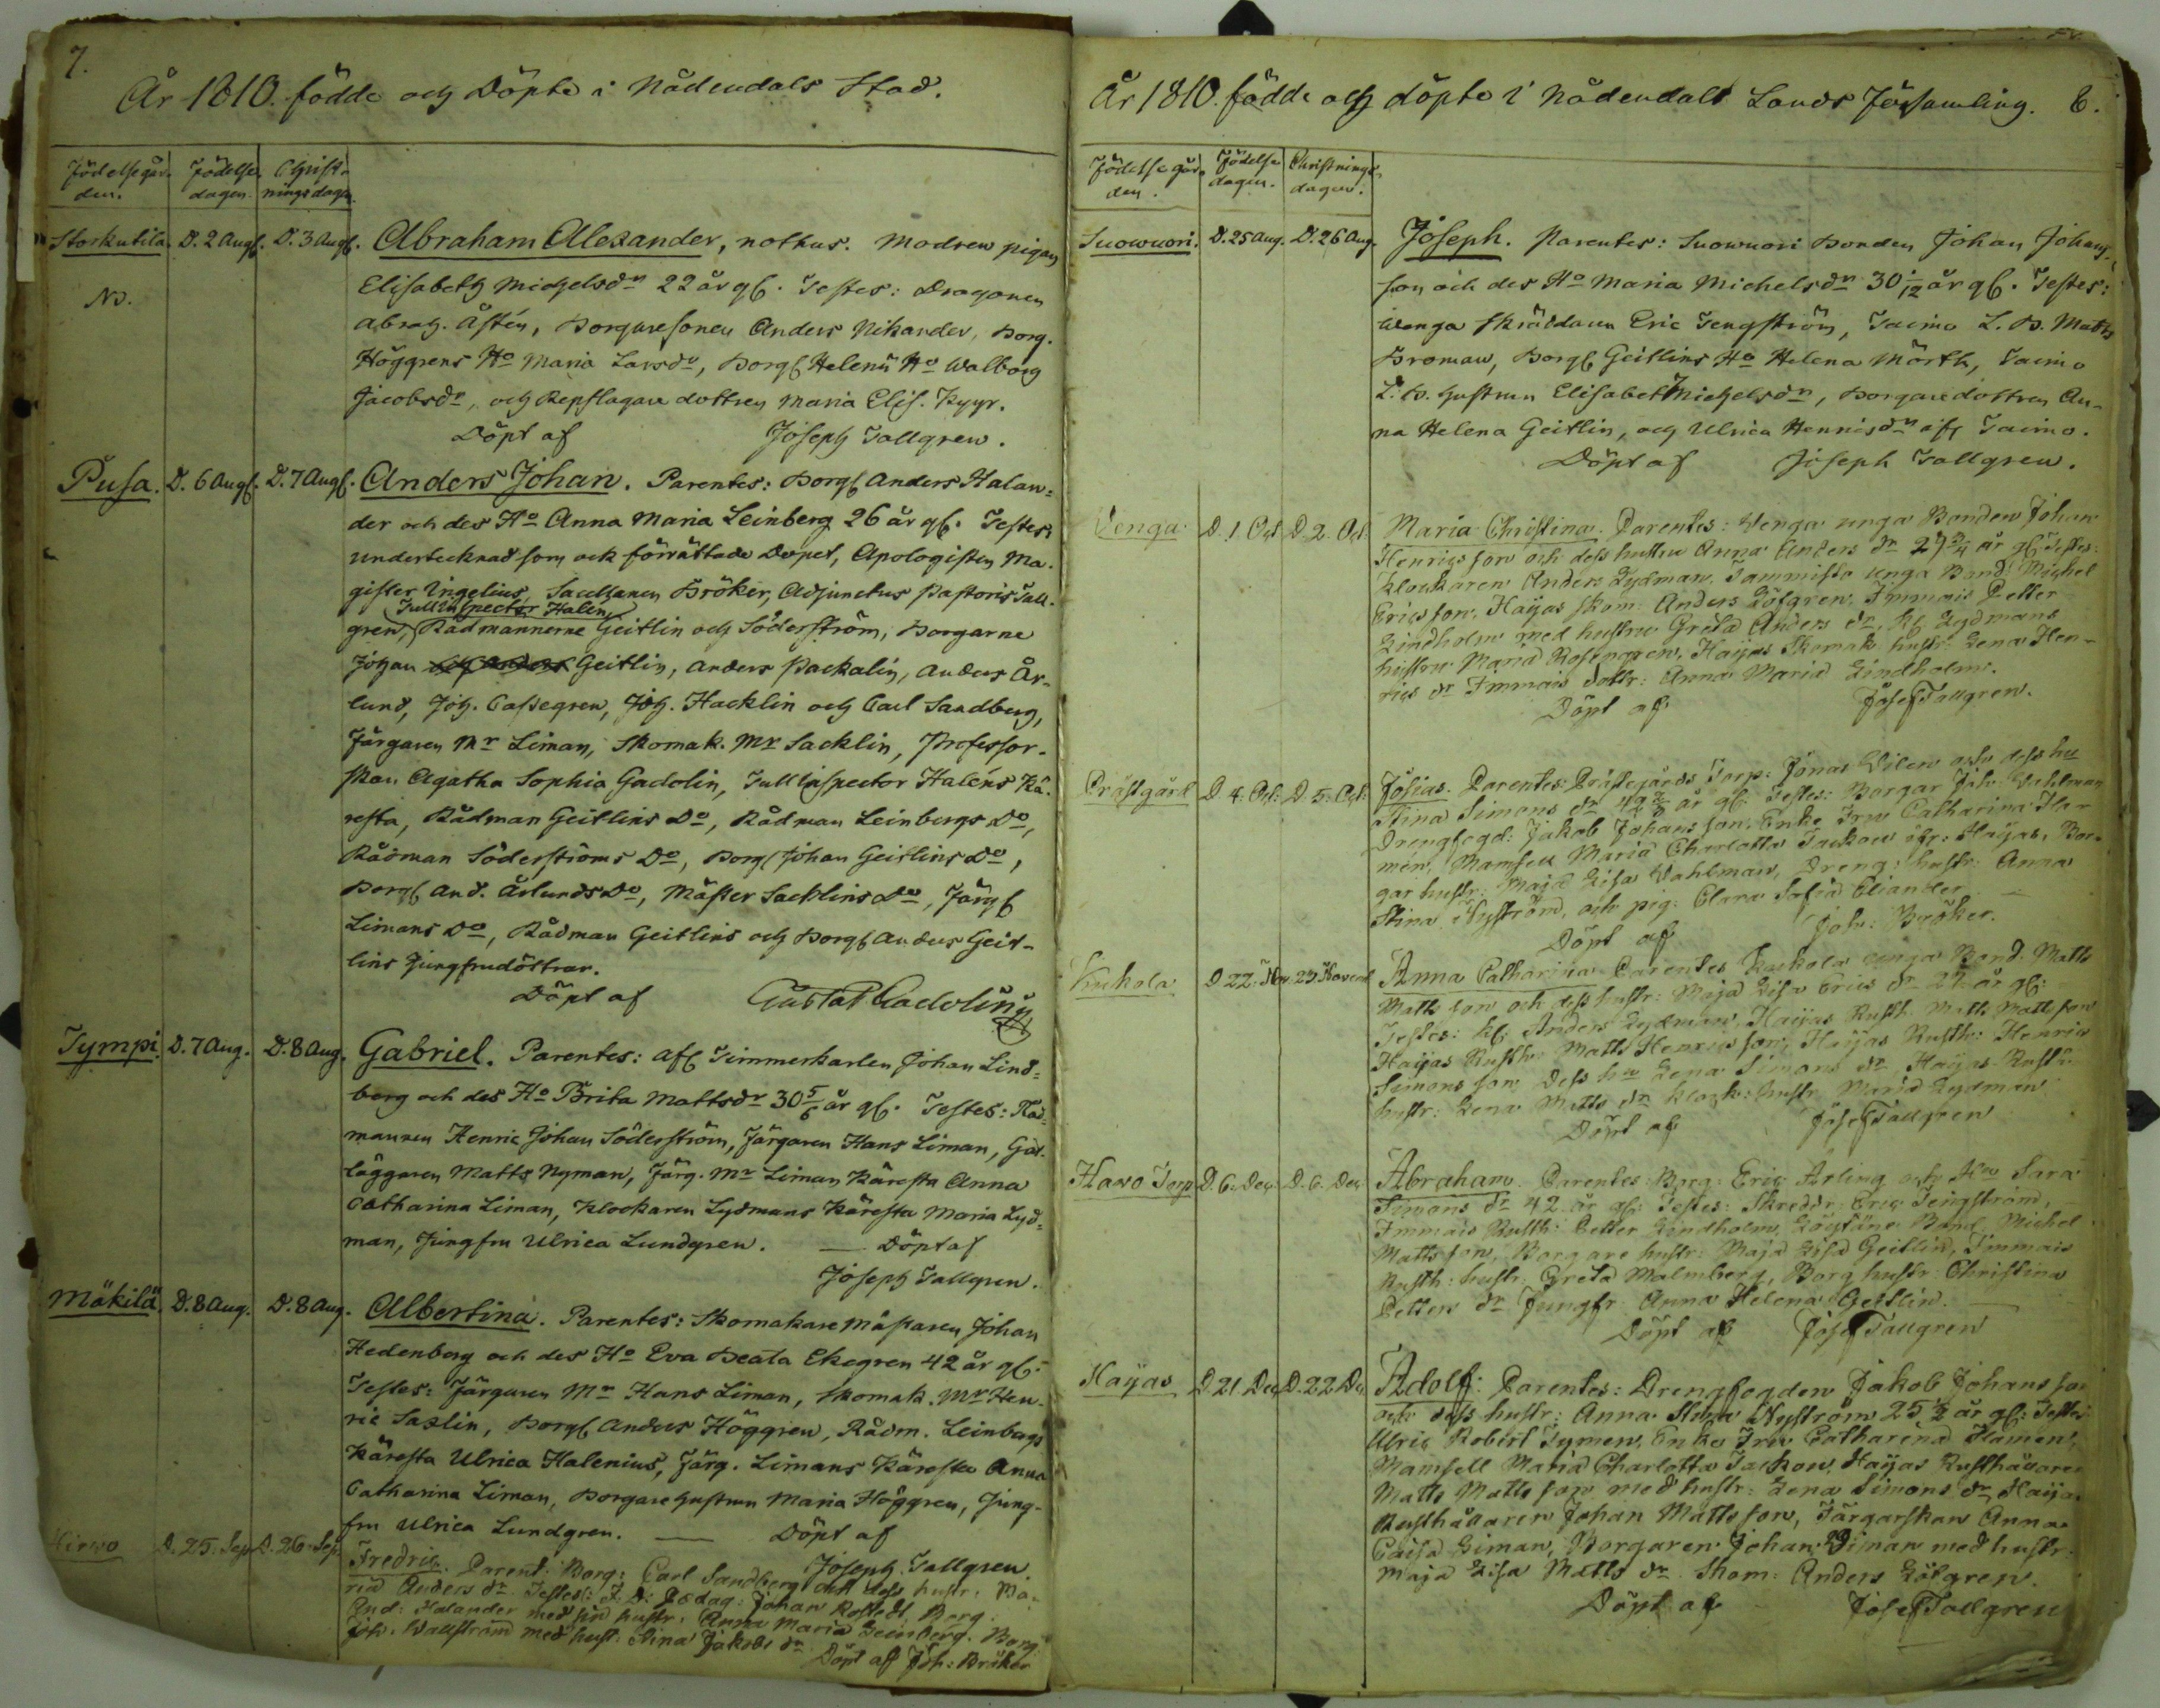 7.
År 1810. födde och Döpte i Nådendals Stad.
Födelsegår-
den.
Födelse
dagen.
Christ-
ningsdagen.
Storkutila. D. 2 Augs. D. 3 Augs. Abraham Alexander, nothus. Modren pigan
No.
Elisabeth Michelsdr 22 år gl. Testes: Dragonen
Abrah. Åstén, Borgaresonen Anders Nikander, Borg.
Höggrens Ho Maria Larsdr, Borgs Heleni Ho Walborg
Jacobsdr, och Repslagare dottren Maria Elis. Kyyr.
Döpt af Joseph Tallgren.
Pusa. D. 6 Augs. D. 7 Augs. Anders Johan. Parentes: Borgs Anders Halan=
der och des Ho Anna Maria Leinberg 26 år gl. Testes:
undertecknad som ock förrättade Dopet, Apologisten Ma-
gister Ingelius, Sacellanen Bröker, Adjunctus Pastoris Tall-
Tullinspector Halen,
gren, Rådmannerne Geitlin och Söderström, Borgarne
Johan Geitlin, Anders Packalin, Anders År-
lund, Joh. Cassegren, Joh. Hacklin och Carl Sandberg,
Färgaren Mr Liman, Skomak. Mr Sacklin, Professor-
skan Agatha Sophia Gadolin, Tullinspector Haléns Kä-
resta, Rådman Geitlins Do, Rådman Leinbergs Do,
Rådman Söderströms Do, Borgs Johan Geitlins Do,
Borgs And. Årlunds Do, Mäster Sacklins Do, Färgs
Limans Do, Rådman Geitlins och Borgs Anders Geit-
lins Jungfrudöttrar.
Döpt af Gustaf Gadolin
Tympi. D. 7 Aug. D. 8 Aug. Gabriel. Parentes: Afs Timmerkarlen Johan Lind=
berg och des Ho Brita Mattsdr 30 5/6 år gl. Testes: Råd-
mannen Henric Johan Söderström, Färgaren Hans Liman,
läggaren Matts Nyman, Färg. Mr Liman Käresta Anna
Catharina Liman, Klockaren Lydmans Käresta Maria Lyd=
man, Jungfru Ulrica Lundgren. — Döpt af
Joseph Tallgren.
Mäkilä. D. 8 Aug. D. 8 Aug. Albertina. Parentes: Skomakare mästaren Johan
Hedenborg och des Ho Eva Beata Ekegren 42 år gl.
Testes: Färgaren Mr Hans Liman, Skomak. Mr Hen-
ric Saxlin, Borgs Anders Höggren, Rådm. Leinbergs
Käresta Ulrica Halenius, Färg. Limans Käresta Anna
Catharina Liman, Borgare hustrun Maria Höggren, Jung-
fru Ulrica Lundgren. — Döpt af
Joseph Tallgren.
Hirwo D. 25. Sep. D. 26. Sep. Fredric. Parent: Borg: Carl Sandberg och dess hustr: Ma-
ria Anders dr. Testes: Pædag: Johan Rostedt, Borg:
And: Halander med sin hustr: Anna Maria Leinberg. Borg:
Joh: Wallström med hust: Stina Jakobs dr
Döpt af Joh: Bröker
År 1810. födde och döpte i Nådendals Lands Församling. 8.
Födelsegår-
den.
Födelse
dagen.
Christnings-
dagen.
Suowuori. D. 25 Aug. D. 26 Aug. Joseph. Parentes: Suowuori Bonden Johan Johans-
son och des Ho Maria Michelsdr 30 1/12 år gl. Testes:
Wenga Skräddaren Eric Tengström, Taimo L. B. Matts
Broman, Borgs Geitlins Ho Helena Mörtk, Taimo
L. B. hustrun Elisabeth Michelsdr, Borgaredottren An-
na Helena Geitlin, och Ulrica Hennisdr ifr Taimo.
Döpt af Joseph Tallgren.
Venga D. 1 Oct D. 2. Oct. Maria Christina. Parentes: Wenga unga Bonden Johan
Henrics son och dess hustru Anna Anders dr 27 3/4 år gl: Testes:
Klockaren Anders Lydman, Tammisto unga Bond: Michel
Erics son, Haijas Skom: Anders Löfgren, Immais Petter
Lindholm med hustru Greta Anders dr, Kl. Lydmans
hustru Maria Rosengren, Haijas Skomak: hustr: Lena Hen-
rics dr Immais dottr: Anna Maria Lindholm.
Döpt af Josef Tallgren.
Prästgård D. 4. Oct: D. 5. Oct: Josias. Parentes: Prästegårds Torp: Jonas Wilen och dess hu
Stina Simons dr år gl: Testes: Borgar Joh: Wahlman
Drengfogd: Jakob Johans son, Enke Fru Catharina Ha-
men, Mamsell Maria Charlotta ifr: Haijas, Bor-
gar hustr: Maja Lisa Wahlman, Dreng: hustr: Anna
Stina Nyström, och pig: Clara Sofia Eliander —
Döpt af Joh: Bröker.
Kukola D. 22. Nov. 23 Novemb Anna Catharina Parentes Kukola unga Bond. Matts
Matts son och dess hustr: Maja Lisa Erics dr 27 år gl:
Testes: Kl. Anders Lydman, Haijas Rusth. Matts Matts son
Haijas Rusth: Matts Henrics son, Haijas Rusth: Henric
Simons son Dess hu Lena Simons dr Haijas Rusth:
hustr: Lena Matts dr Klock: hustr Maria Lydman
Döpt af Josef Tallgren
Hawo Torp D. 6. Dec. D. 6. Dec Abraham. Parentes Borg: Eric Arling och Hu Sara
Simons dr 42 år gl: Testes: Skreddr: Eric Tengström,
Immais Rusth: Petter Lindholm, Bond. Michel
Matts son, Borgare hustr: Maja Lisa Geitlin, Immais
Rusth: hustr: Greta Malmberg, Borg hustr Christina
Petters dr Jungfr Anna Helena Geitlin. —
Döpt af Josef Tallgren
Haijas D. 21 Dec D. 22 Dec Adolf: Parentes: Drengfogden Jakob Johans son
och dess hustr: Anna Stina Nyström 25 1/2 år gl: Testes
Ulric Robert Tymen, Enke Fru Catharina Hamen,
Mamsell Maria Charlotta Haijas Rusthållaren
Matts Matts son med hustr: Lena Simons dr Haijas
Rusthållaren Johan Matts son, Färgarskan Anna
Caisa Liman, Borgaren Johan Liman med hustr:
Maja Lisa Matts dr Skom: Anders Löfgren.
Döpt af Josef Tallgren